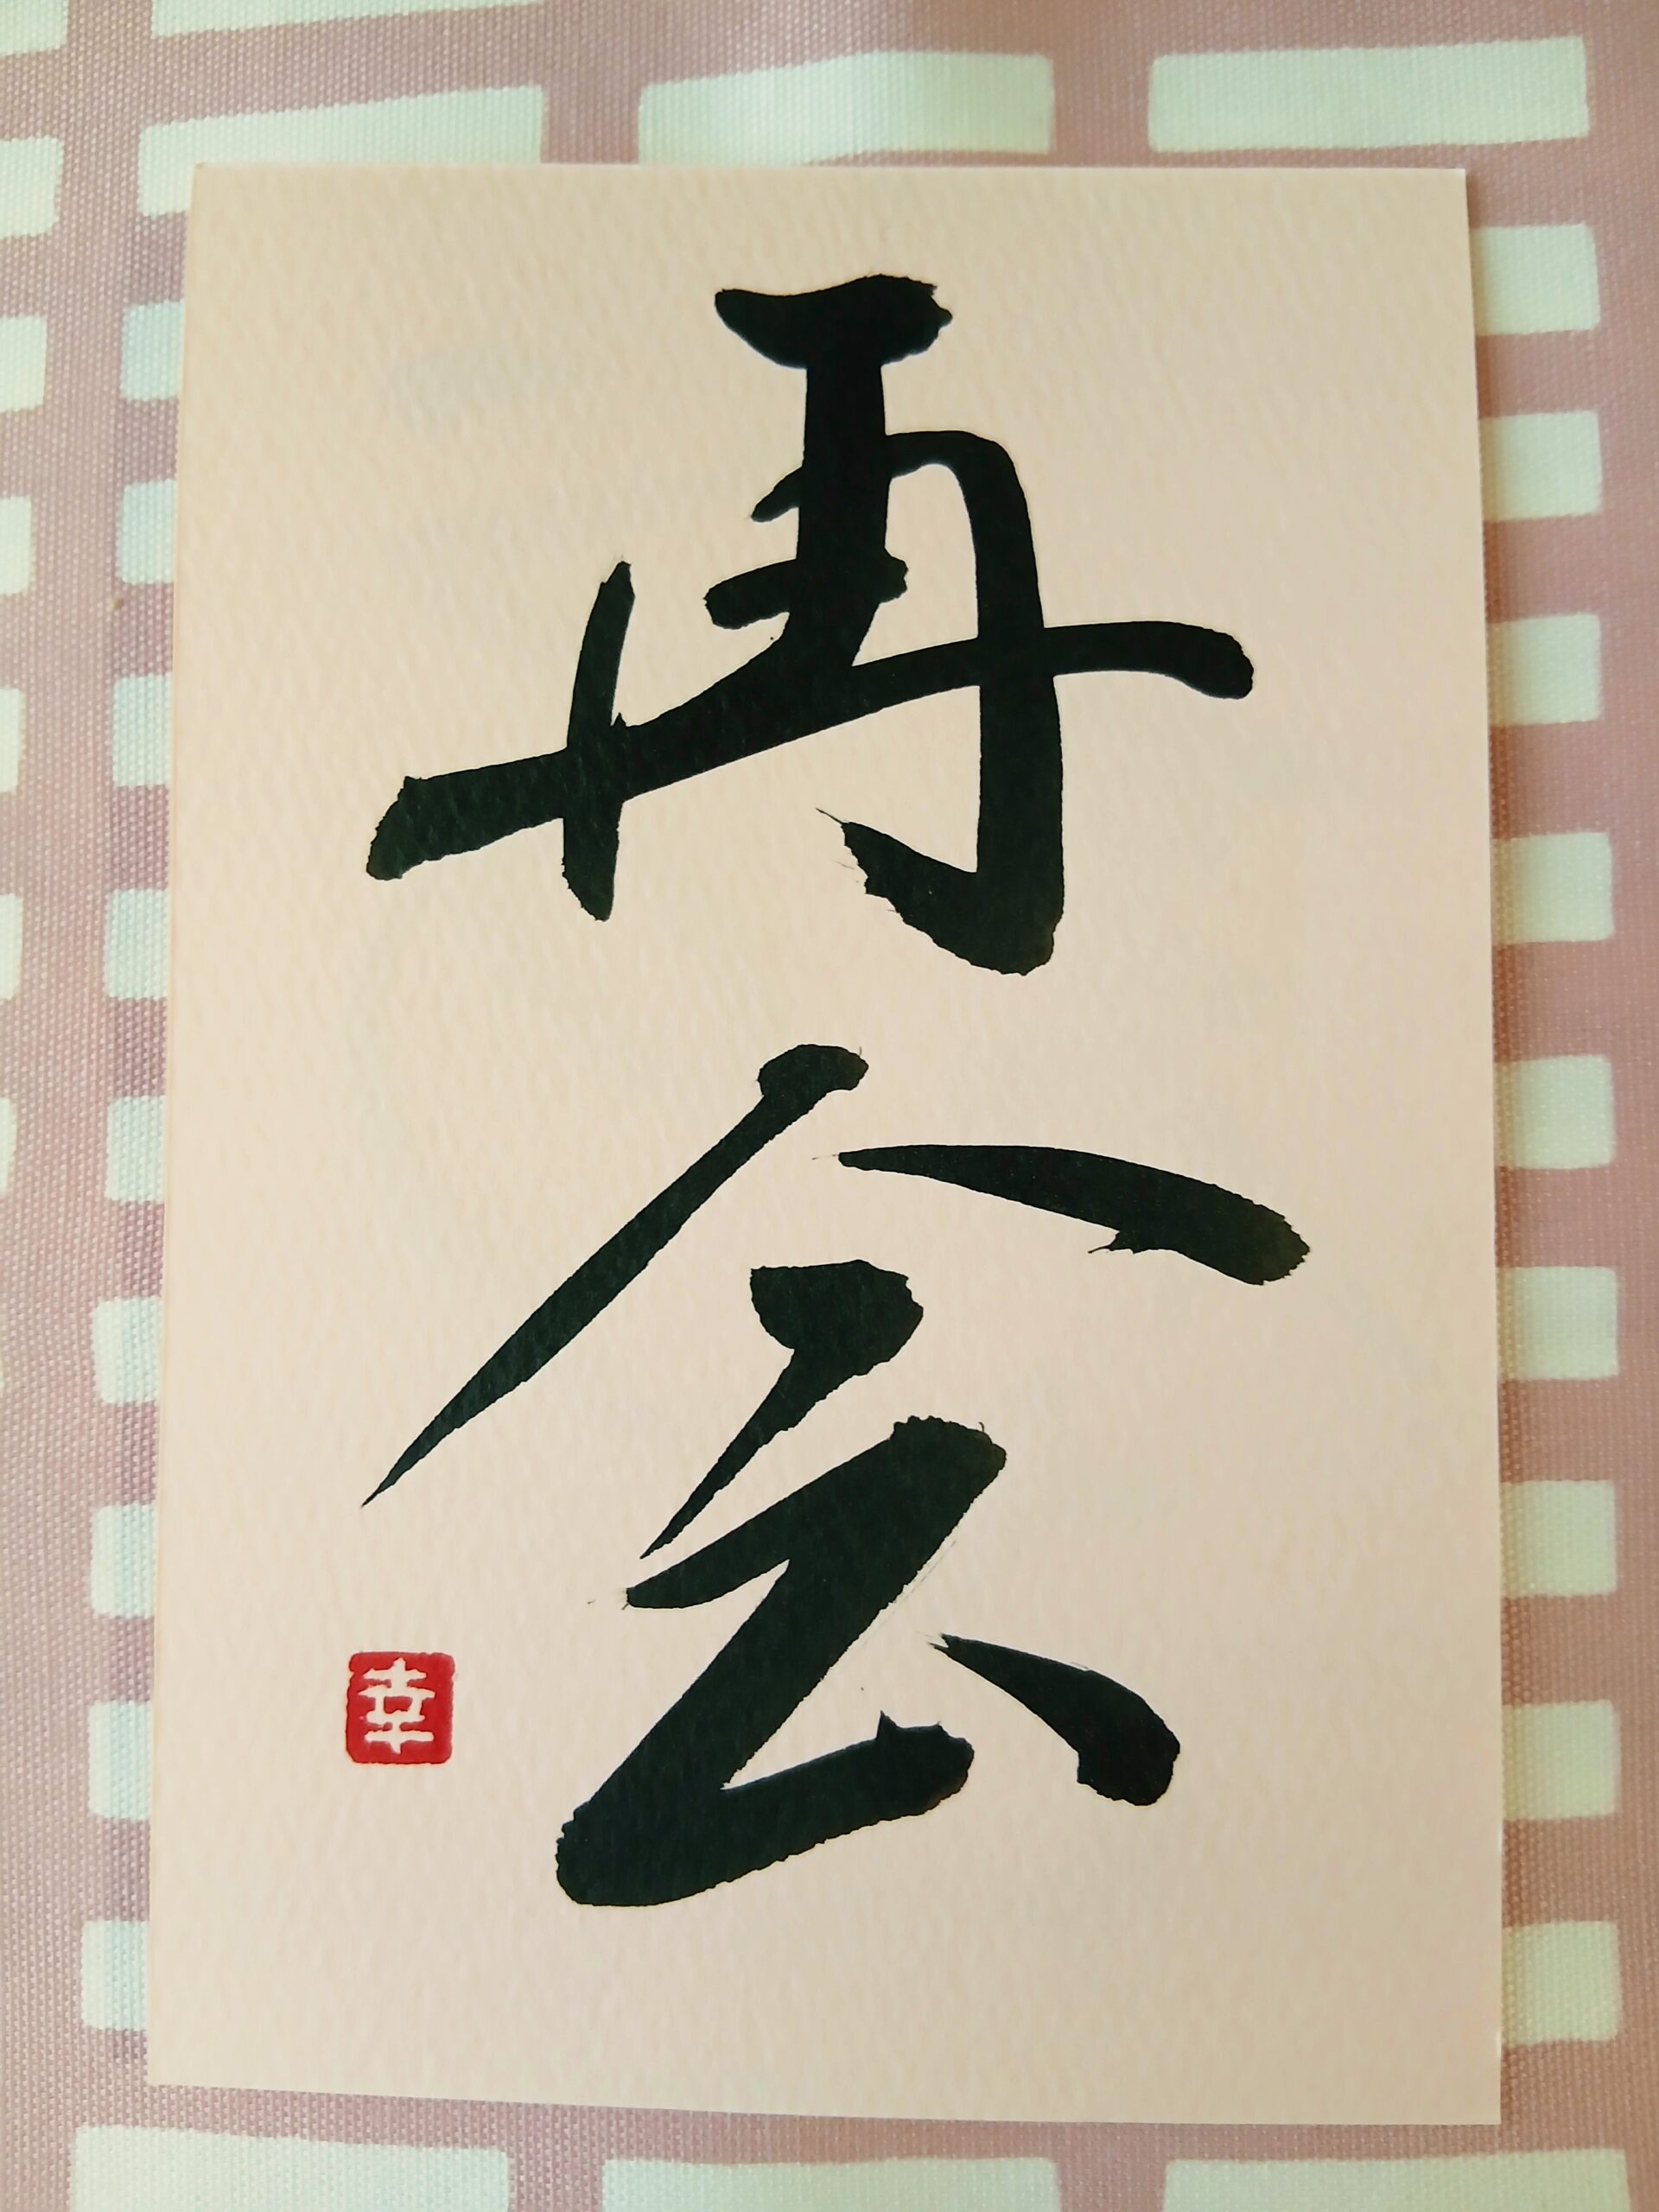 再会
幸